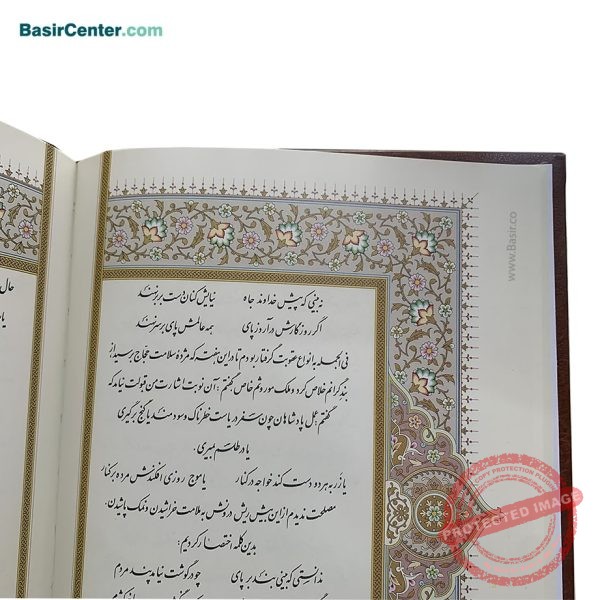 BasirCenter.com
www.Basir.co
حال
نه بینی که پیش خداوند جاه نیایش کنان دست بر بر نهند
اگر روزگارش درآرد ز پای همه عالمش پای بر سر نهند
فی الجمله به انواع عقوبت گرفتار بودم تا در این هفته که مژدهٔ سلامت حجاج برسید از
بند گرانم خلاص کرد و ملک موروثم خاص گفتم: آن نوبت اشارت من قبولت نیامد که
گفتم عمل پادشاهان چون سفر دریاست خطرناک و سودمند یا گنج برگیری
یا در طلسم بمیری.
یا زر به هر دو دست کند خواجه در کنار یا موج روزی افکندش مرده بر کنار
مصلحت ندیدم از این بیش ریش درونش به ملامت خراشیدن و نمک پاشیدن.
بدین کلمه اختصار کردیم:
ندانستی که بینی بند بر پای چو در گوشت نیامد پند مردم
PROTECTED IMAGE